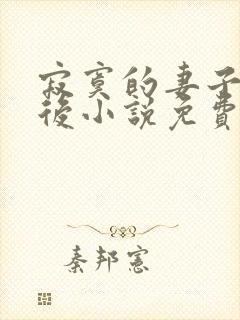 寂寞的妻子
後小說免費
秦邦憲